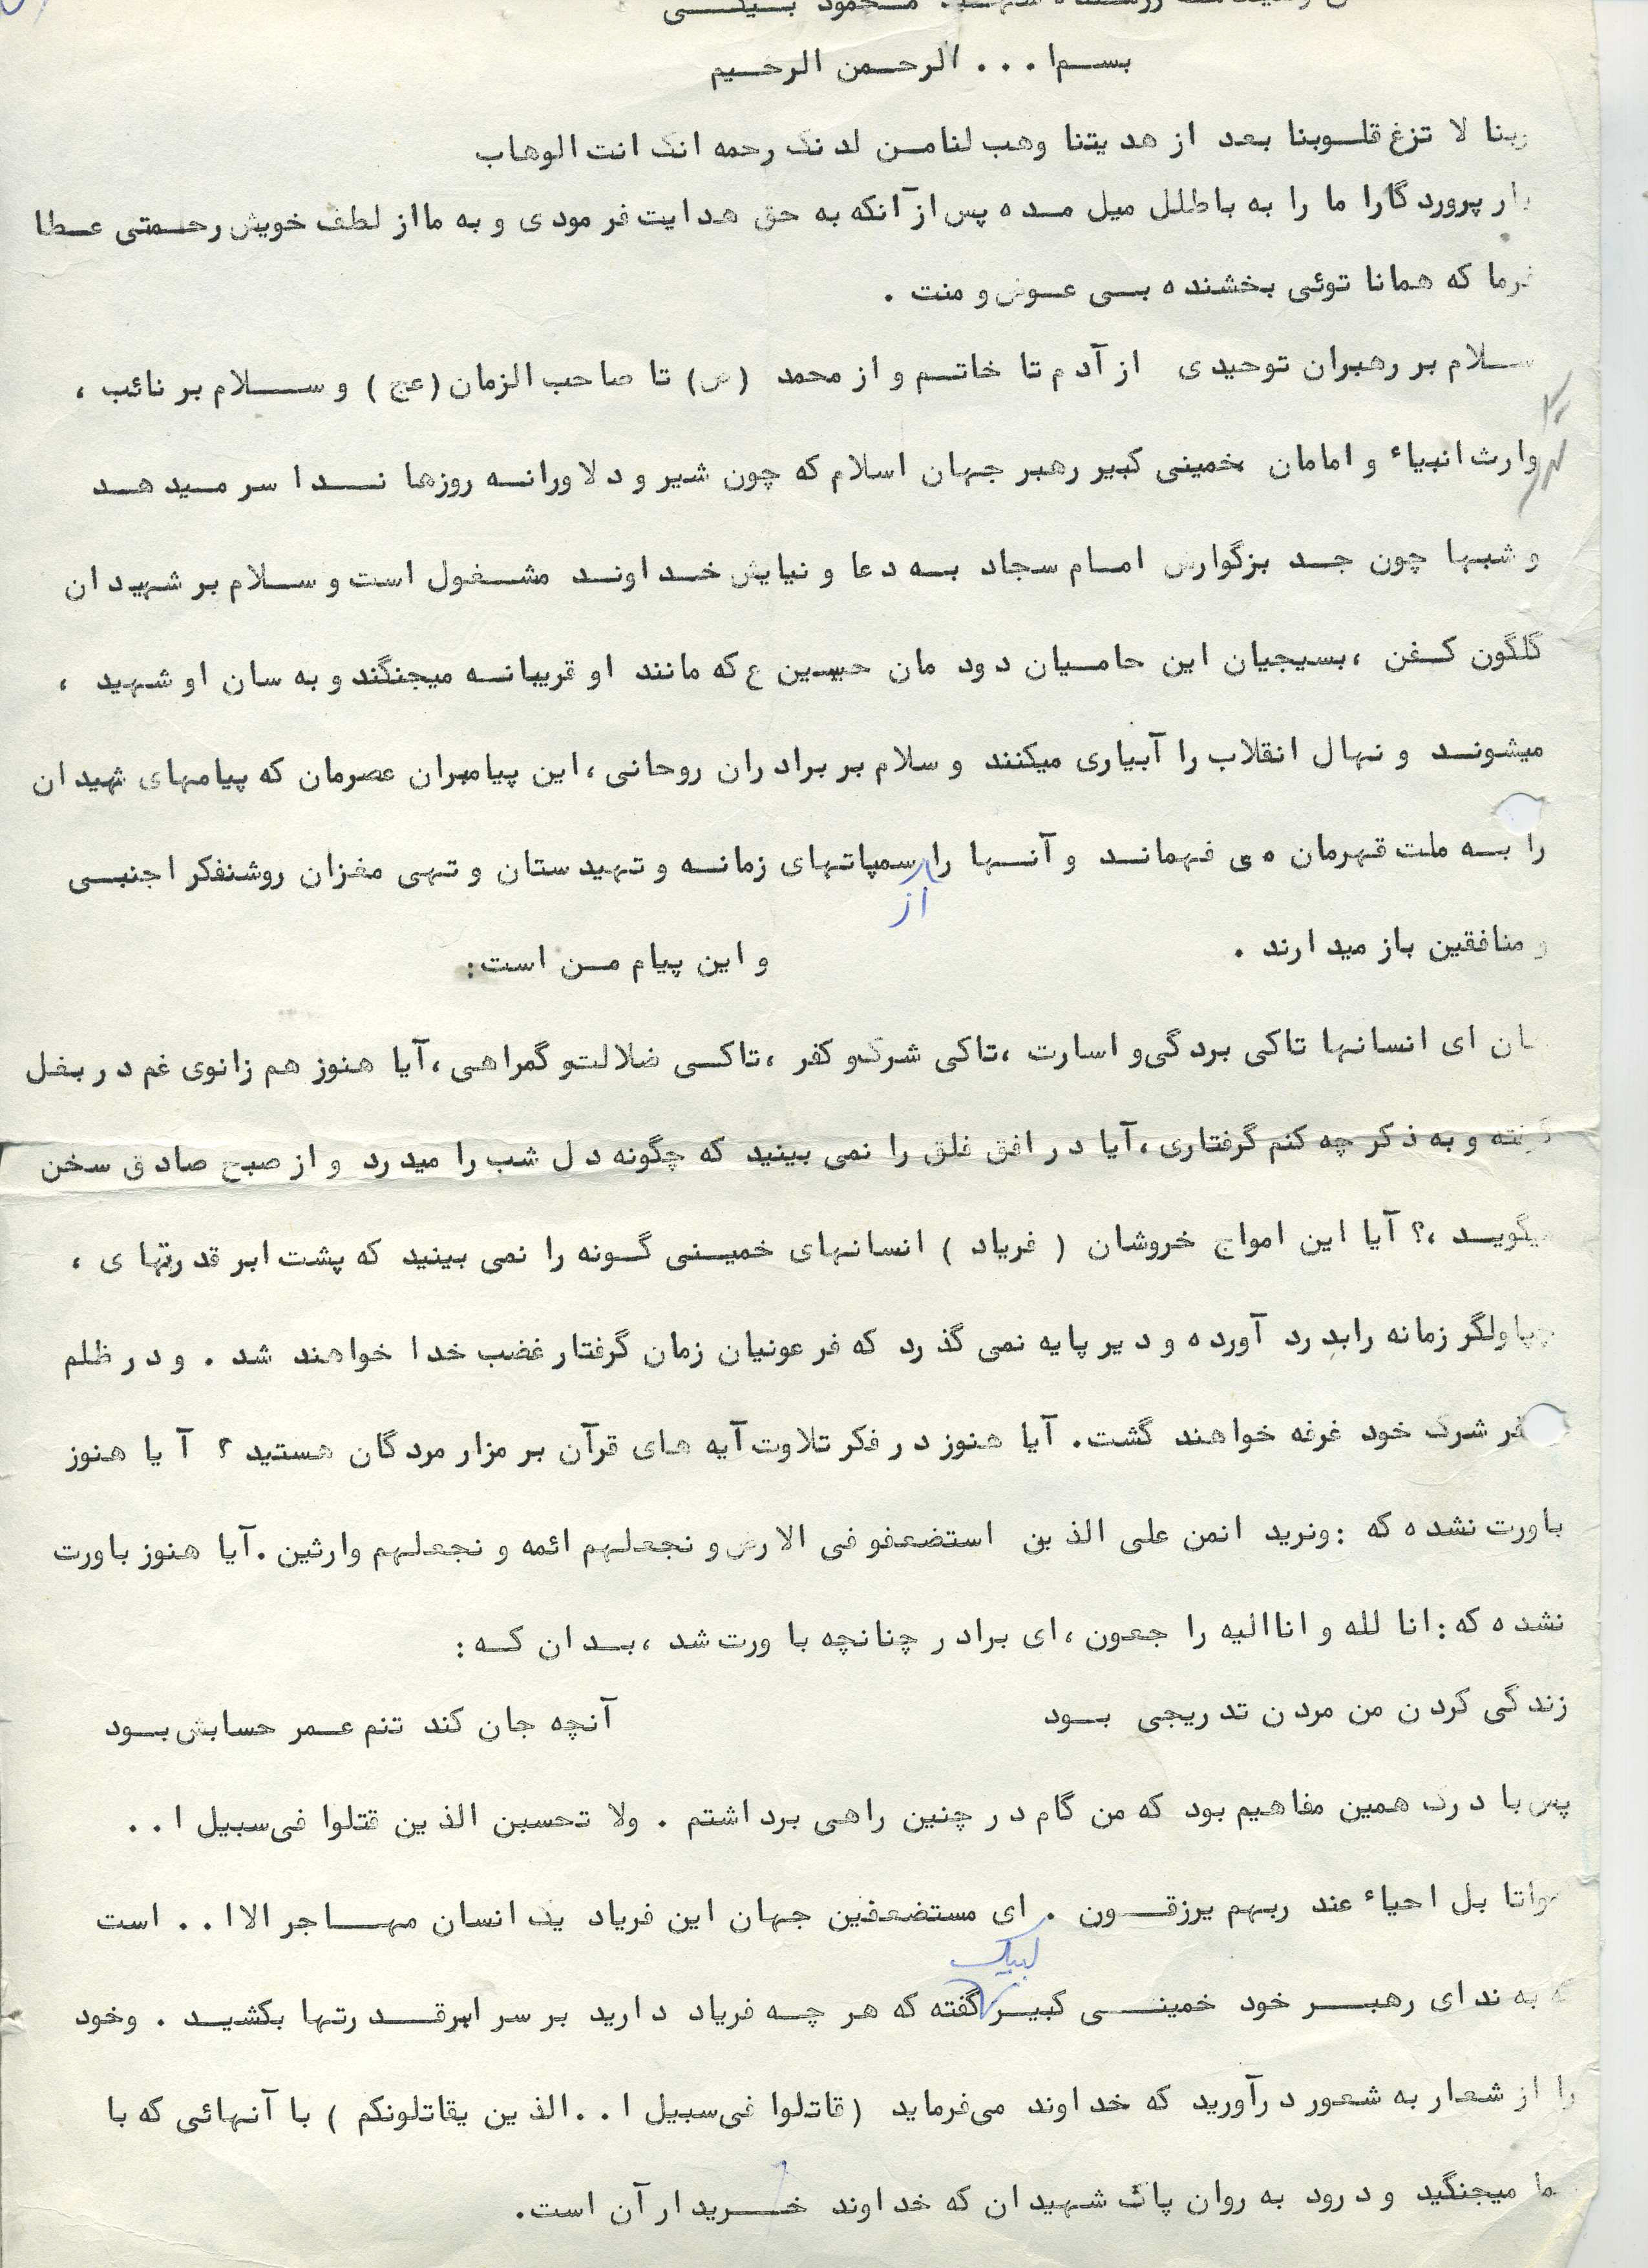 محمود بیگی
بسم ا . . . الرحمن الرحیم
ربنا لا تزغ قلوبنا بعد از هدیتنا وهب لنا من لدنک رحمه انک انت الوهاب
بار پروردگارا ما را به باطلل میل مده پس از آنکه به حق هدایت فرمودی و به ما از لطف خویش رحمتی عطا
فرما که همانا توئی بخشنده بی عوض و منت .
سلام بر رهبران توحیدی از آدم تا خاتم و از محمد (ص) تا صاحب الزمان (عج) و سلام بر نائب ،
وارث انبیاء و امامان خمینی کبیر رهبر جهان اسلام که چون شیر و دلاورانه روزها ندا سر میدهد
و شبها چون جد بزگوارش امام سجاد به دعا و نیایش خداوند مشغول است و سلام بر شهیدان
گلگون کفن ،بسیجیان این حامیان دودمان حسین ع که مانند او قریبانه میجنگند و به سان او شهید ،
میشوند و نهال انقلاب را آبیاری میکنند و سلام بر برادران روحانی ،این پیامبران عصرمان که پیامهای شهیدان
را به ملت قهرمان می فهماند و آنها را از سمپاتهای زمانه و تهیدستان و تهی مغزان روشنفکر اجنبی
و منافقین باز میدارند . و این پیام من است:
هان ای انسانها تاکی بردگی و اسارت ،تاکی شرک و کفر ،تاکی ضلالت و گمراهی ،آیا هنوز هم زانوی غم در بغل
گرفته و به ذکر چه کنم گرفتاری ،آیا در افق فلق را نمی بینید که چگونه دل شب را میدرد و از صبح صادق سخن
میگوید ،؟ آیا این امواج خروشان ( فریاد ) انسانهای خمینی گونه را نمی بینید که پشت ابر قدرتهای ،
چپاولگر زمانه را بدرد آورده و دیر پایه نمی گذرد که فرعونیان زمان گرفتار غضب خدا خواهند شد . و در ظلم
شرک خود غرفه خواهند گشت. آیا هنوز در فکر تلاوت آیه های قرآن بر مزار مردگان هستید ؟ آیا هنوز
باورت نشده که :ونرید انمن علی الذین استضعفو فی الارض و نجعلهم ائمه و نجعلهم وارثین .آیا هنوز باورت
نشده که :انا لله و اناالیه را جعون ،ای برادر چنانچه باورت شد ،بدان که :
زندگی کردن من مردن تدریجی بود آنچه جان کند تنم عمر حسابش بود
پس با درک همین مفاهیم بود که من گام در چنین راهی برداشتم . ولا تحسبن الذین قتلوا فی سبیل ا . .
امواتا بل احیاء عند ربهم یرزقون . ای مستضعفین جهان این فریاد یک انسان مهاجر الاا . . است
که به ندای رهبر خود خمینی کبیر لبیک گفته که هر چه فریاد دارید بر سر ابرقدرتها بکشید . وخود
را از شعار به شعور درآورید که خداوند می‌فرماید (قاتلوا فی سبیل ا . .الذین یقاتلونکم ) با آنهائی که با
ما میجنگید و درود به روان پاک شهیدان که خداوند خریدار آن است.